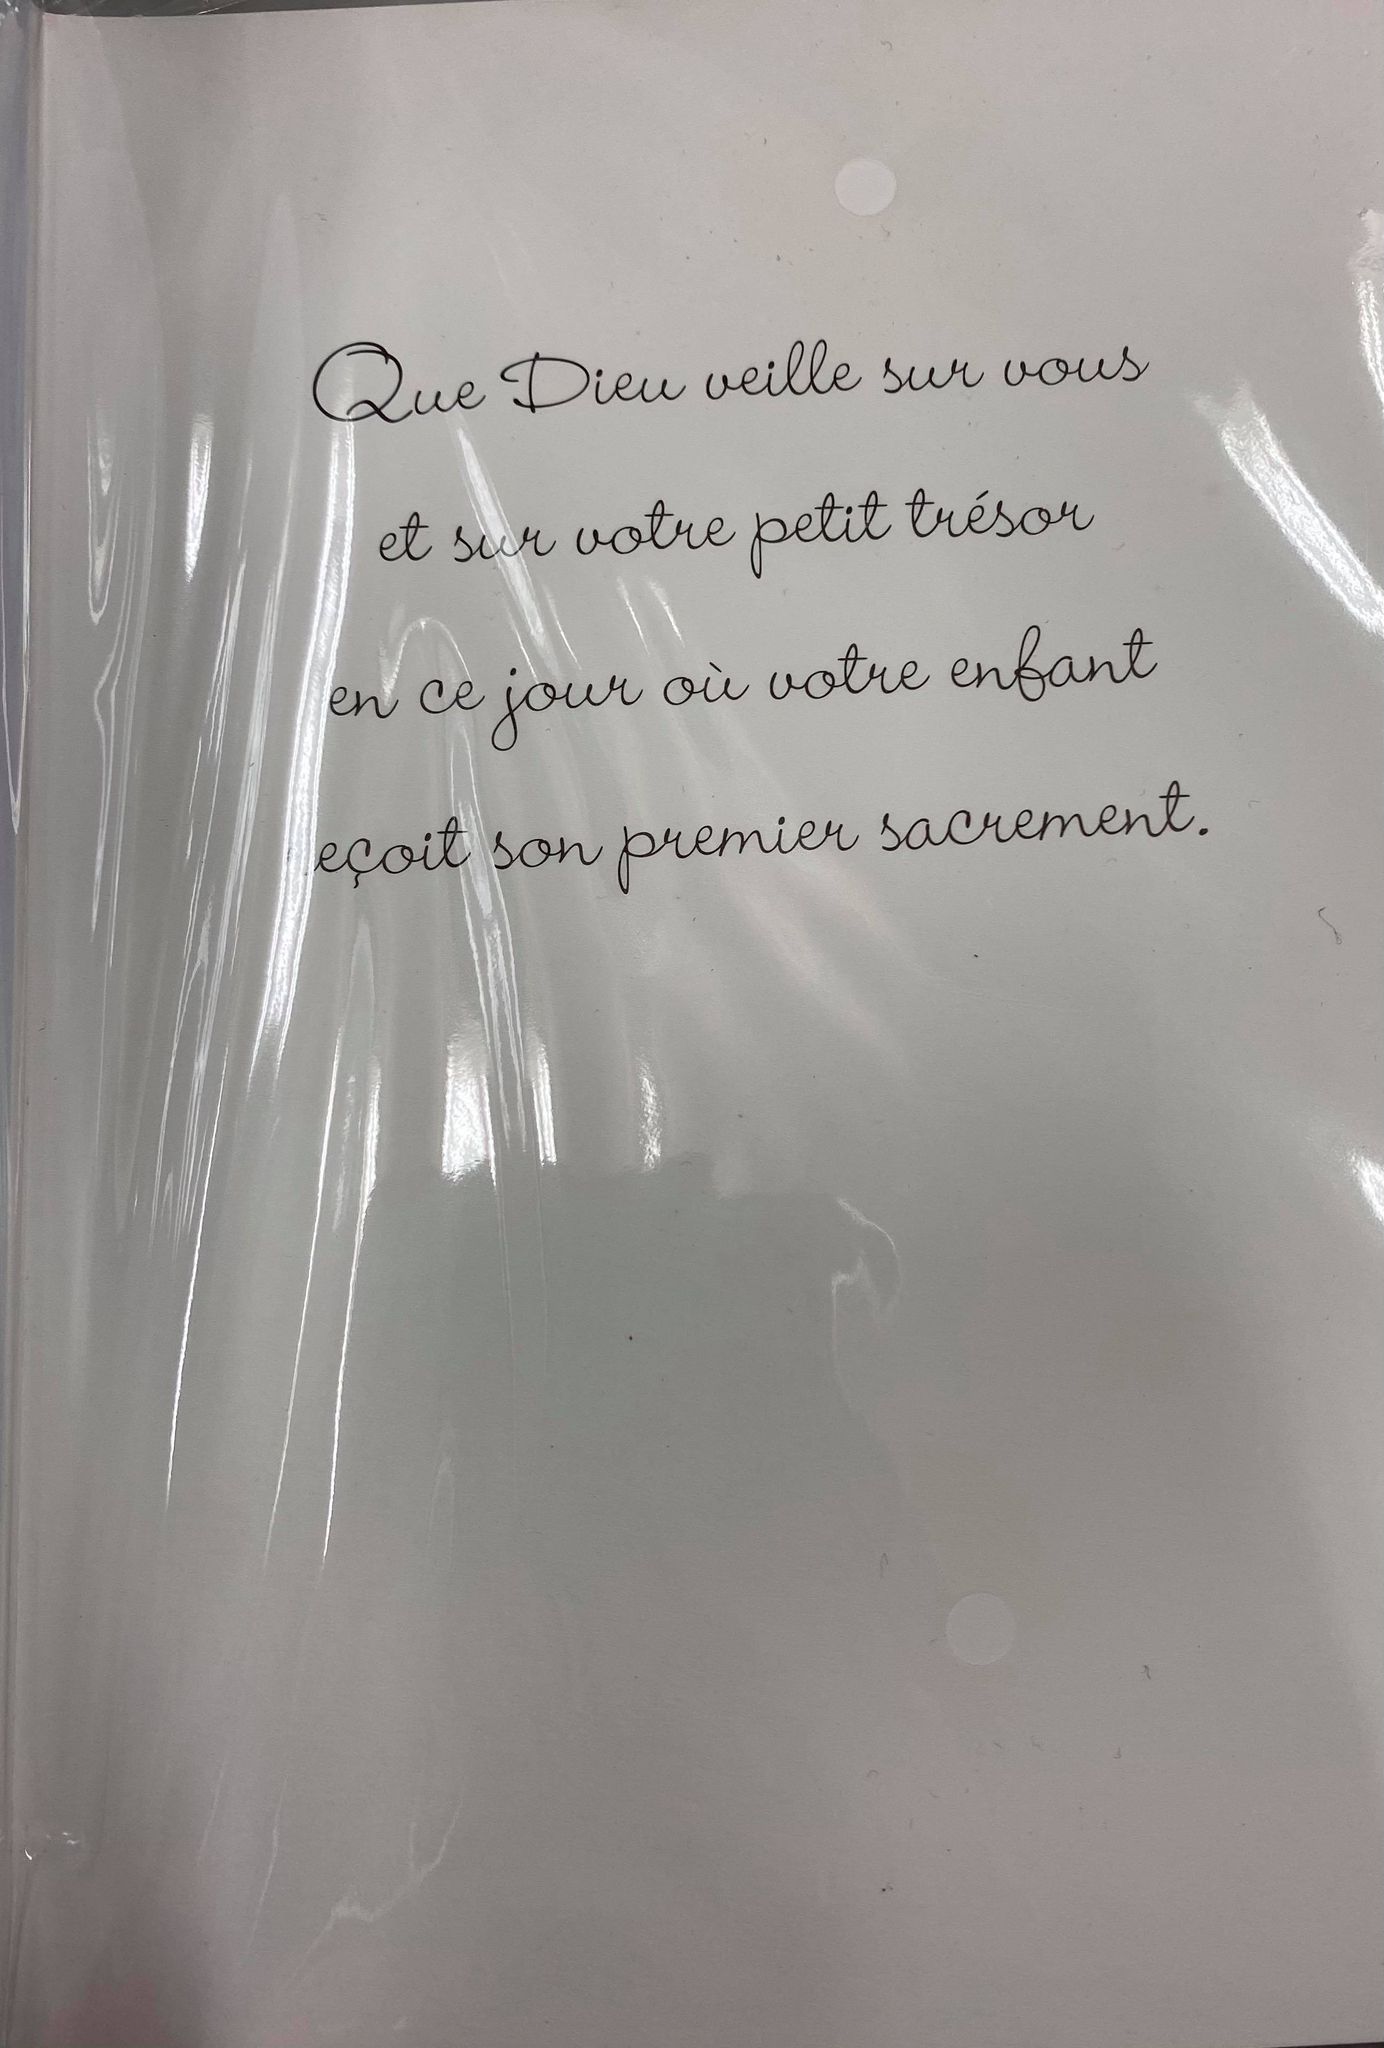 Que Dieu veille sur vous
et sur votre petit trésor
en ce jour où votre enfant
reçoit son premier sacrement.